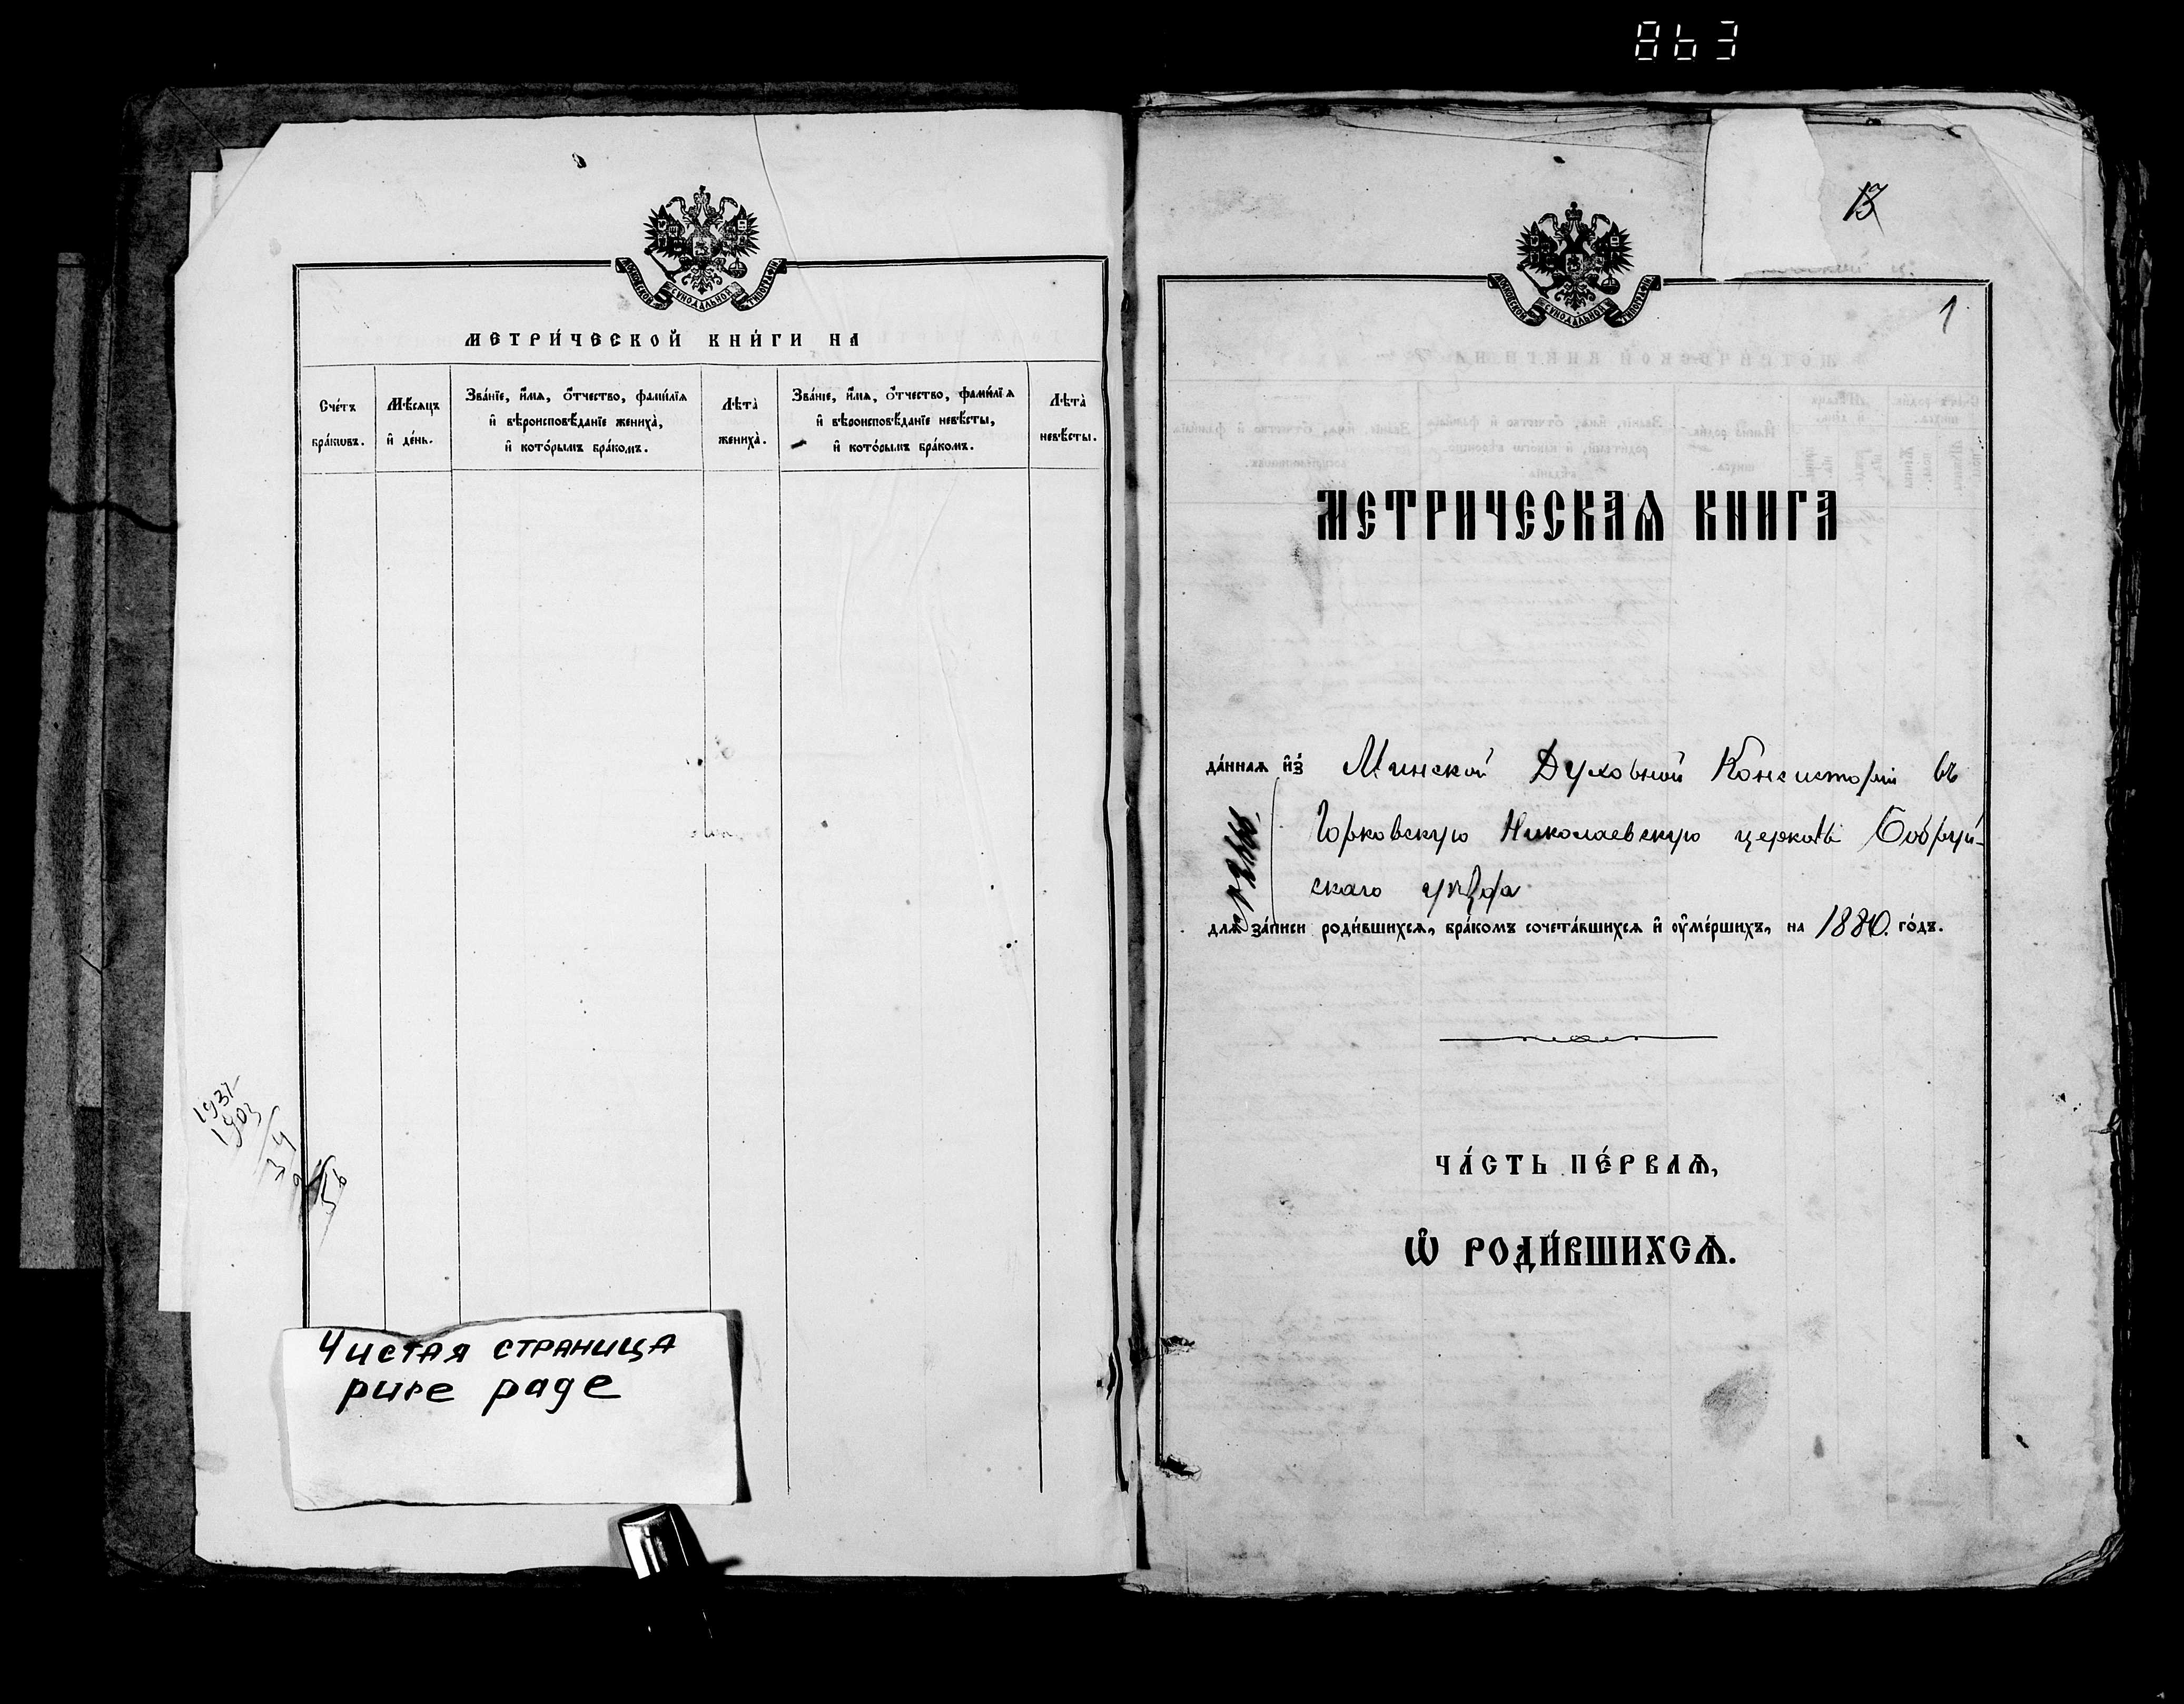 863
МОСКОВСКОЙ СѴНОДАЛЬНОЙ ТИПОГРАФІИ
МЕТРИ́ЧЕСКОЙ КНИ́ГИ НА
Сче́тъ бра́кѡвъ.
Мѣ́сѧцъ и҆ де́нь.
Зва́нїе, и҆́мѧ, ѻ҆́тчество, фами́лїѧ
и҆ вѣроисповѣ́данїе жениха̀,
и҆ кото́рымъ бра́комъ.
Лѣта̀ жениха̀.
Зва́нїе, и҆́мѧ, ѻ҆́тчество, фами́лїѧ
и҆ вѣроисповѣ́данїе невѣ́сты,
и҆ кото́рымъ бра́комъ.
Лѣта̀ невѣ́сты.
1937
1903
34
Чистая страница
pure page
13
1
МОСКОВСКОЙ СѴНОДАЛЬНОЙ ТИПОГРАФІИ
МЕТРИЧЕСКАѦ КНИГА
да́ннаѧ и҆з̾ Минской Духовной Консисторіи въ
Горковскую Николаевскую церковь Бобруй-
скаго уѣзда
длѧ̀ за́писи роди́вшихсѧ, бра́комъ сочета́вшихсѧ и҆ ᲂу҆ме́ршихъ, на 1880. го́дъ.
ЧА́СТЬ ПЕ́РВАѦ,
Ѽ РОДИ́ВШИХСѦ.